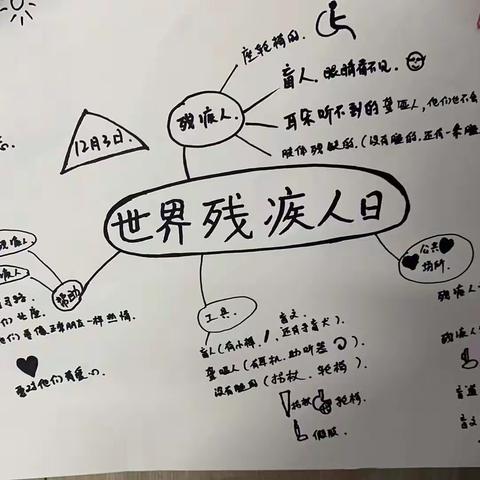 座轮椅的.
盲人.眼睛看不见.
耳朵听不到的聋哑人,他们也不会
肢体残缺的.(没有腿的,还有一条腿
残疾人.
12月3日.
世界残疾人日
公共
场所.
残疾人
残疾人.
疾人
帮助
们让座.
们要像正常朋友一样热情.
要对他们有爱心
工具.
盲文.
盲人(有小棒, 还有导盲犬).
聋哑人(有耳机.助听器).
没有腿的(拐杖.轮椅).
拐杖
轮椅.
假肢.
残疾人
盲道
盲文